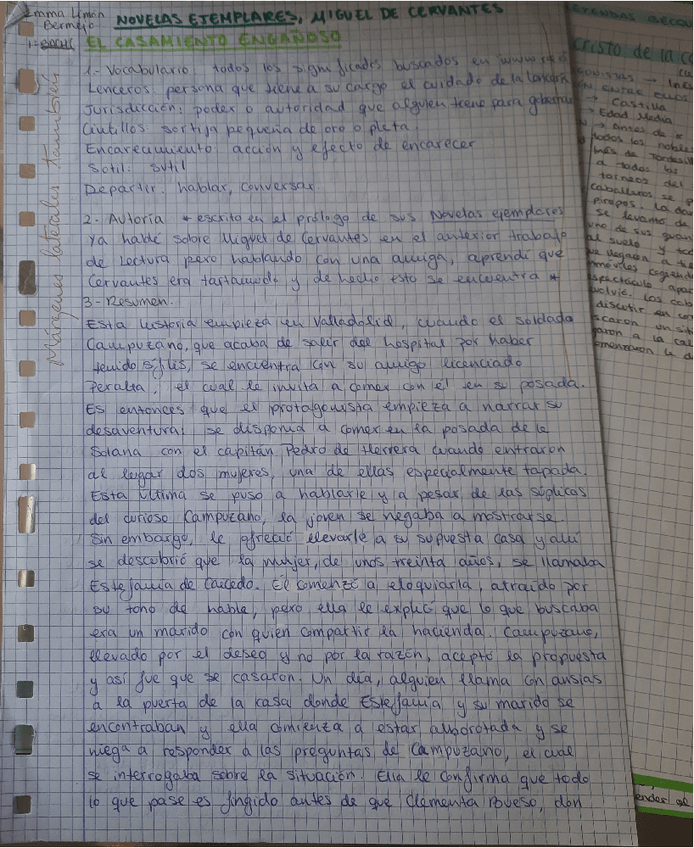 Emma Limón
Bermejo
1º BACH C
NOVELAS EJEMPLARES, MIGUEL DE CERVANTES
EL CASAMIENTO ENGAÑOSO
Márgenes laterales también
1.- Vocabulario: todos los significados buscados en www.
Lenceros: persona que tiene a su cargo el cuidado de la lencería
Jurisdicción: poder o autoridad que alguien tiene para gobernar
Cintillos: sortija pequeña de oro o plata
Encarecimiento: acción y efecto de encarecer
Sotil: sutil
Departir: hablar, conversar.
2.- Autoría * escrito en el prólogo de sus Novelas ejemplares
Ya hablé sobre Miguel de Cervantes en el anterior trabajo
de lectura pero hablando con una amiga, aprendí que
Cervantes era tartamudo y de hecho esto se encuentra *
3.- Resumen.
Esta historia empieza en Valladolid, cuando el soldado
Campuzano, que acaba de salir del hospital por haber
tenido sífilis, se encuentra con su amigo licenciado
Peralta, el cual le invita a comer con él en su posada.
Es entonces que el protagonista empieza a narrar su
desaventura: se disponía a comer en la posada de la
Solana con el capitán Pedro de Herrera cuando entraron
al lugar dos mujeres, una de ellas especialmente tapada.
Esta última se puso a hablarle y a pesar de las súplicas
del curioso Campuzano, la joven se negaba a mostrarse.
Sin embargo, le ofreció llevarle a su supuesta casa y allí
se descubrió que la mujer, de unos treinta años, se llamaba
Estefanía de Caicedo. Él comenzó a eloguiarla, atraído por
su tono de habla, pero ella le explicó que lo que buscaba
era un marido con quien compartir la hacienda. Campuzano,
llevado por el deseo y no por la razón, aceptó la propuesta
y así fue que se casaron. Un día, alguien llama con ansias
a la puerta de la casa donde Estefanía y su marido se
encontraban y ella comienza a estar alborotada y se
niega a responder a las preguntas de Campuzano, el cual
se interrogaba sobre la situación. Ella le confirma que todo
lo que pase es fingido antes de que Clementa Bueso, don
Cristo de la
Castilla
Edad Media
Antes de
todos los nobles
a todos los
torneos del
caballeros se
piropos. La
se levantó de
uno de sus
al suelo y
inmóviles cogiendo
espectáculo
volvió. Los
discutir en
comenzaron a